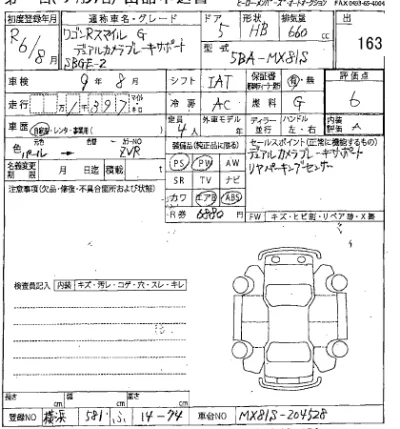 初度登録年月 通称車名・グレード ドア 形状 排気量 出
R6/8月 ワゴンRスマイル G 5 HB 660 cc 163
デュアルカメラブレーキサポート 型式
SBGE-2 5BA-MX81S
車検 9年 8月 シフト IAT 保証書 有・無 評価点
走行 万 1397 マイル キロ 冷房 AC 燃料 G 6
車歴 自家用・レンタ・事業用( ) 定員 4人 外車モデル 年 ディーラー 並行 ハンドル 左・右 内装評価 A
色 パール → カラーNO ZVR 装備品(純正品に限る) セールスポイント(正常に機能するもの)
PS PW AW デュアルカメラブレーキサポート
名義変更期限 月 日迄 積載 t SR TV ナビ リヤパーキングセンサー
注意事項(欠品・修復・不具合箇所および状態) カワ エアB ABS
R券 6880 円 FW キズ・ヒビ割・リペア跡・X勝
検査員記入 内装 キズ・汚レ・コゲ・穴・スレ・キレ
長さ cm 幅 cm 高さ cm
登録NO 横浜 581 ふ 14-74 車台NO MX81S-204528